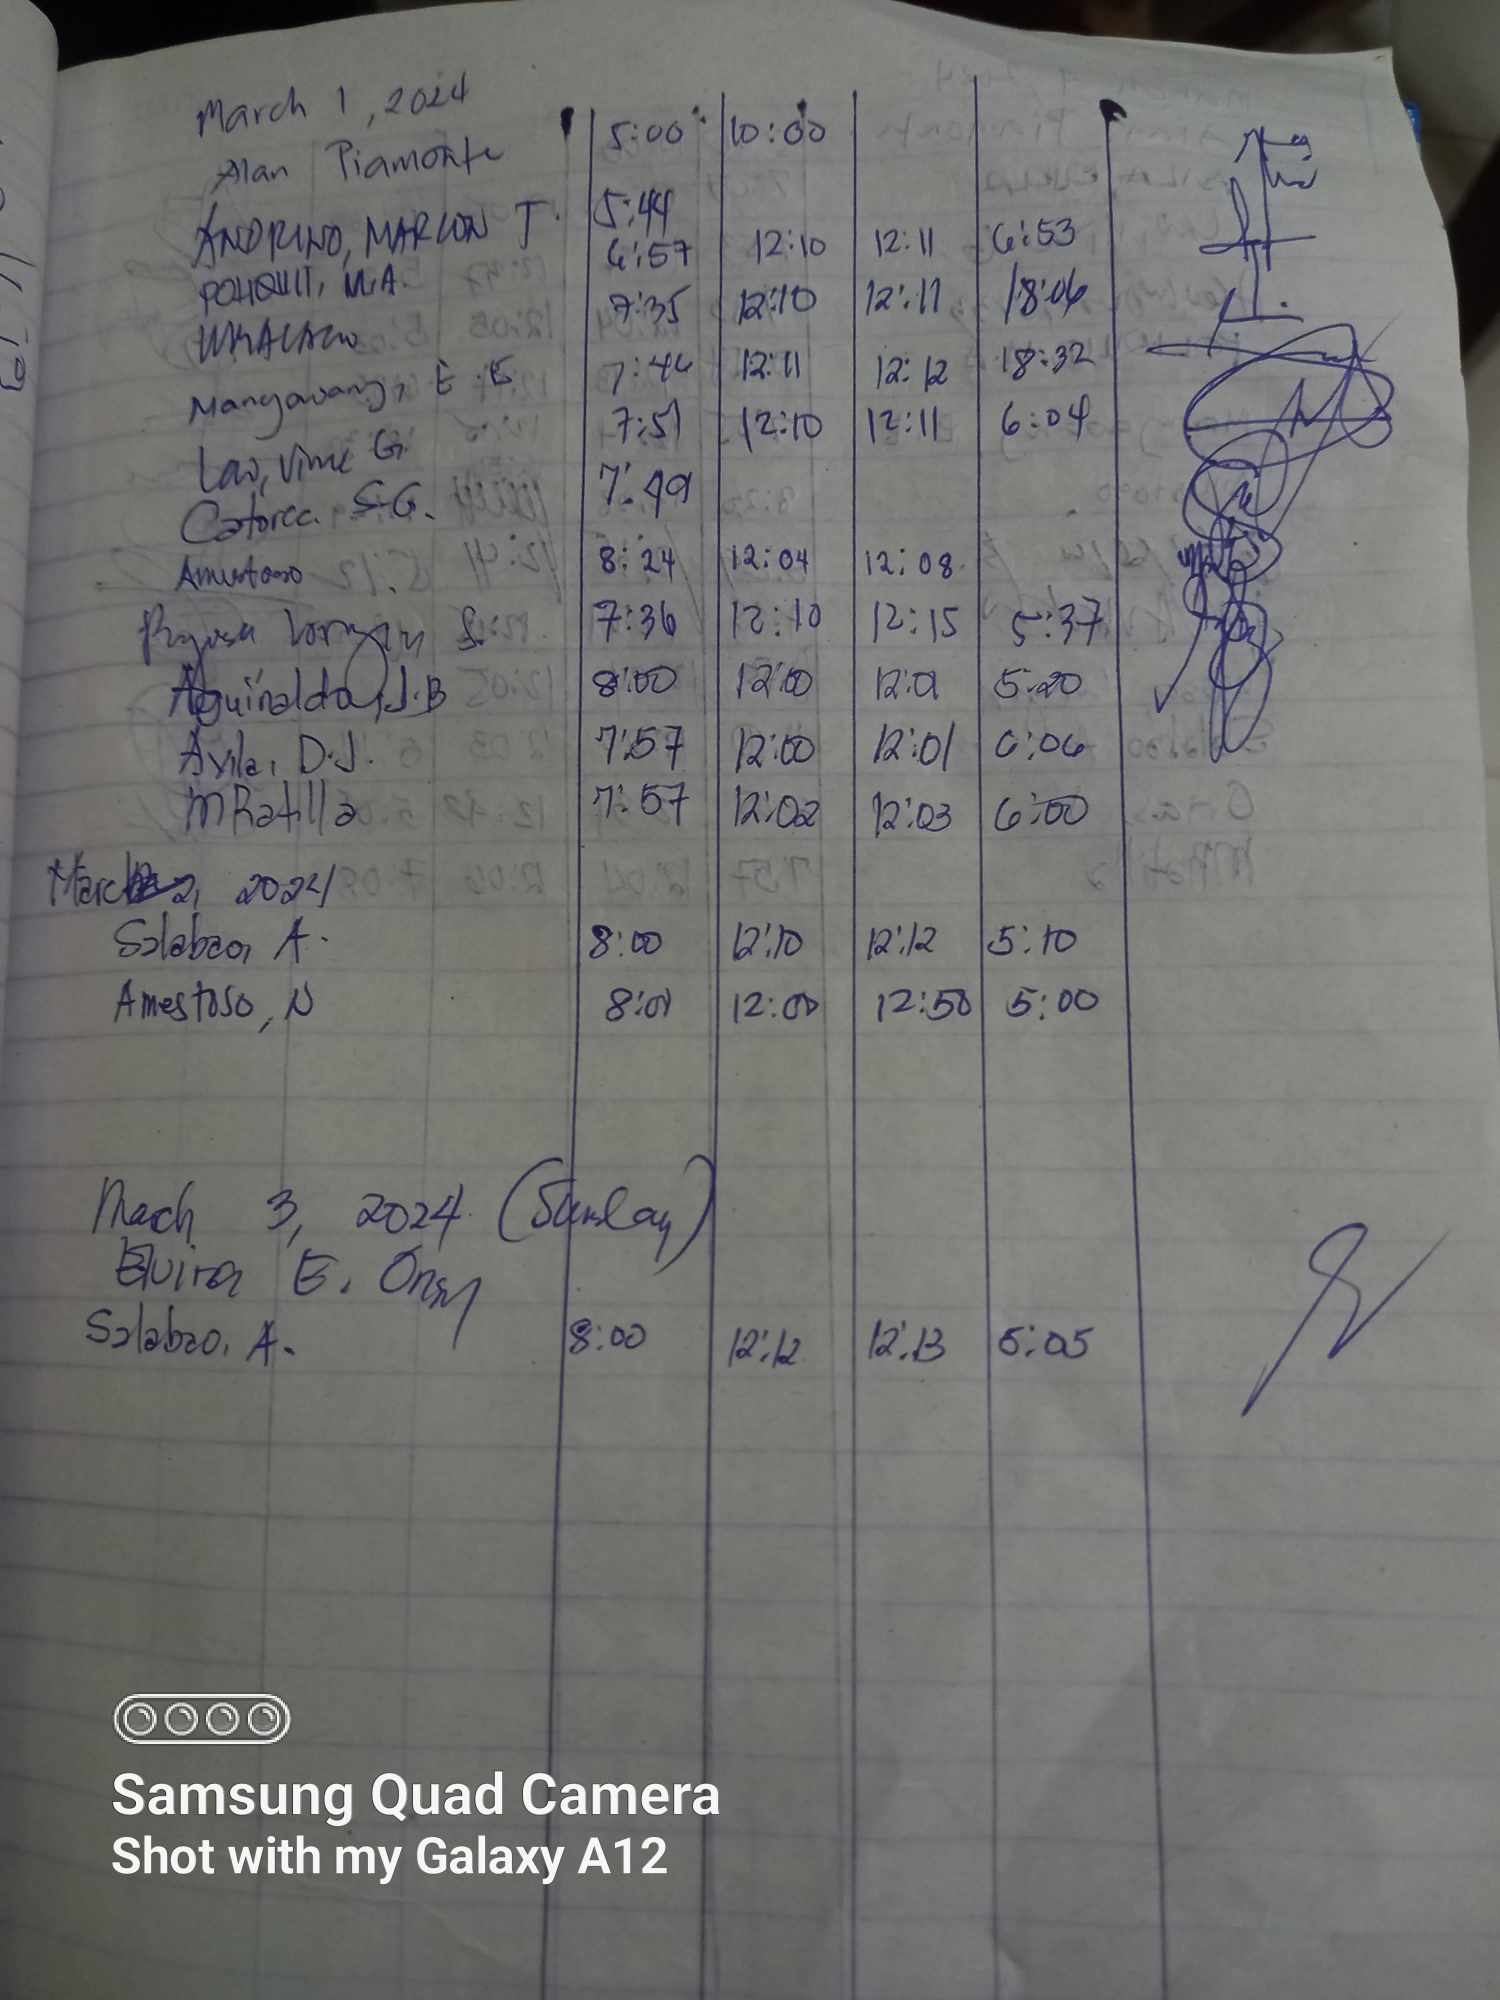 March 1, 2024
Alan Piamonte 5:00 10:00
ANDRINO, MARLON T. 5:44
POHQUIT, M.A. 6:57 12:10 12:11 6:53
7:35 12:10 12:11 18:06
Mangawang, E. E 7:46 12:11 12:12 18:32
Lao, Vime G. 7:51 12:10 12:11 6:04
Catorce S.G. 7:49
Amestoso 8:24 12:04 12:08
7:36 12:10 12:15 5:37
Aguinaldo, J.B 8:00 12:00 12:01 5:20
Avila, D.J. 7:57 12:00 12:01 6:06
MRatilla 7:57 12:02 12:03 6:00
March 2, 2024
Salabao, A. 8:00 12:10 12:12 5:10
Amestoso, N 8:01 12:00 12:50 5:00
Mach 3, 2024 (Sunday)
Elvira E.
Salabao, A. 8:00 12:12 12:13 5:05
Samsung Quad Camera
Shot with my Galaxy A12